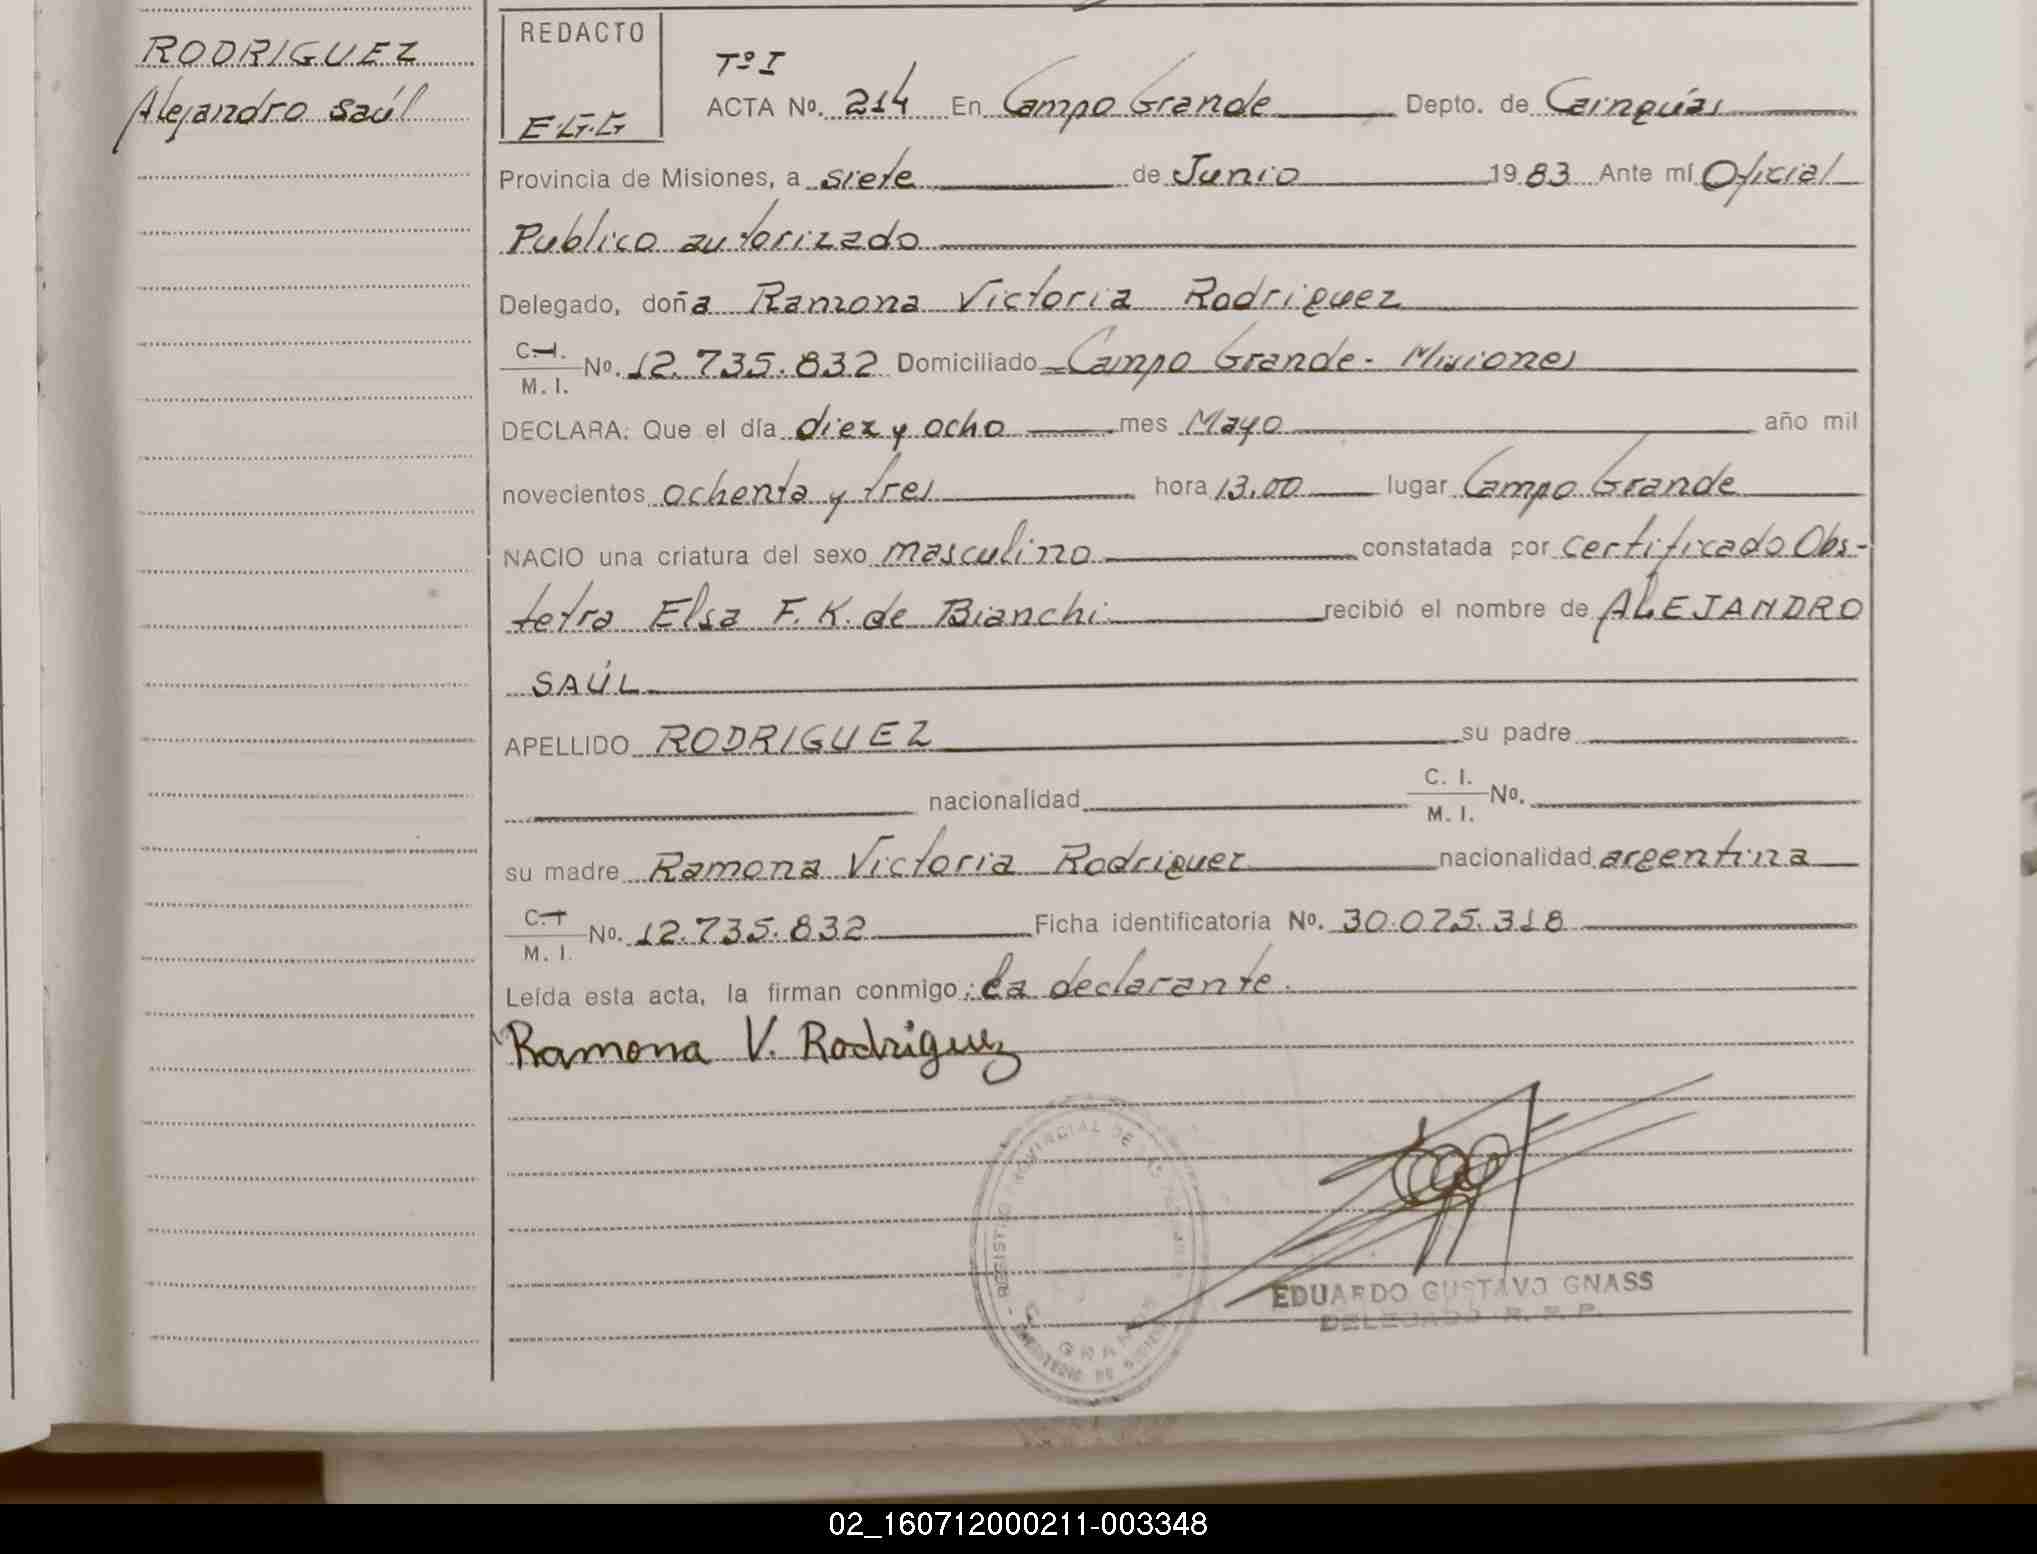 RODRIGUEZ
Alejandro Saúl
REDACTO
E.G.G
Tº I
ACTA Nº. 214 En Campo Grande Depto. de Cainguás
Provincia de Misiones, a siete de Junio 1983 Ante mí Oficial
Publico autorizado
Delegado, doña Ramona Victoria Rodriguez
C. I.
M. I. Nº. 12.735.832 Domiciliado Campo Grande - Misiones
DECLARA: Que el día diez y ocho mes Mayo año mil
novecientos ochenta y tres hora 13.00 lugar Campo Grande
NACIO una criatura del sexo masculino constatada por certificado Obs-
tetra Elsa F. K. de Bianchi recibió el nombre de ALEJANDRO
SAÚL
APELLIDO RODRIGUEZ su padre
nacionalidad C. I.
M. I. Nº.
su madre Ramona Victoria Rodriguez nacionalidad argentina
C. I.
M. I. Nº. 12.735.832 Ficha identificatoria Nº. 30.075.318
Leída esta acta, la firman conmigo: la declarante.
Ramona V. Rodriguez
REGISTRO PROVINCIAL DE LAS PERSONAS
GRANDE
EDUARDO GUSTAVO GNASS
DELEGADO R. P. P.
02_160712000211-003348